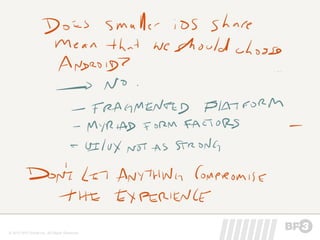 DOES SMALLER iOS SHARE
MEAN THAT WE SHOULD CHOOSE
ANDROID?
→ NO.
- FRAGMENTED PLATFORM
- MYRIAD FORM FACTORS
- UI/UX NOT AS STRONG
DON'T LET ANYTHING COMPROMISE
THE EXPERIENCE
BF3